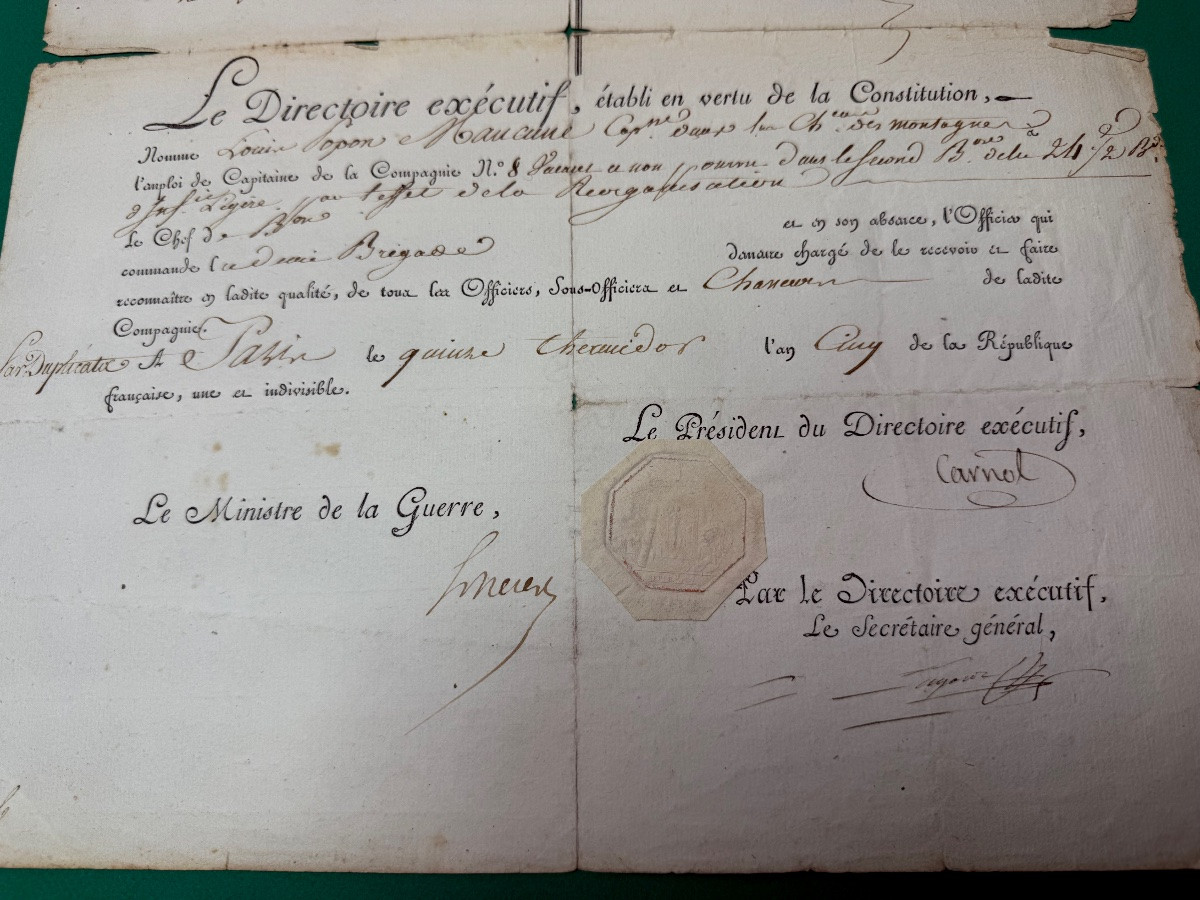 Le Directoire exécutif, établi en vertu de la Constitution,
Nomme Louis Popon Maucune Capne dans les Cheurs des montagnes à
l'emploi de Capitaine de la Compagnie N.º 8 Vacant et non pourvu dans le Second Bon de la 24e 1/2 Bde
d'Infie Légère par l'effet de la Reorganisation
Le Chef de Bon et en son absence, l'Officier qui
commande la demi Brigade demeure chargé de le recevoir et faire
reconnaître en ladite qualité, de tous les Officiers, Sous-Officiers et Chasseurs de ladite
Compagnie.
Par Duplicata A Paris le quinze thermidor l'an Cinq de la République
française, une et indivisible.
Le Président du Directoire exécutif,
Carnot
Le Ministre de la Guerre,
Scherer
Par le Directoire exécutif,
Le Secrétaire général,